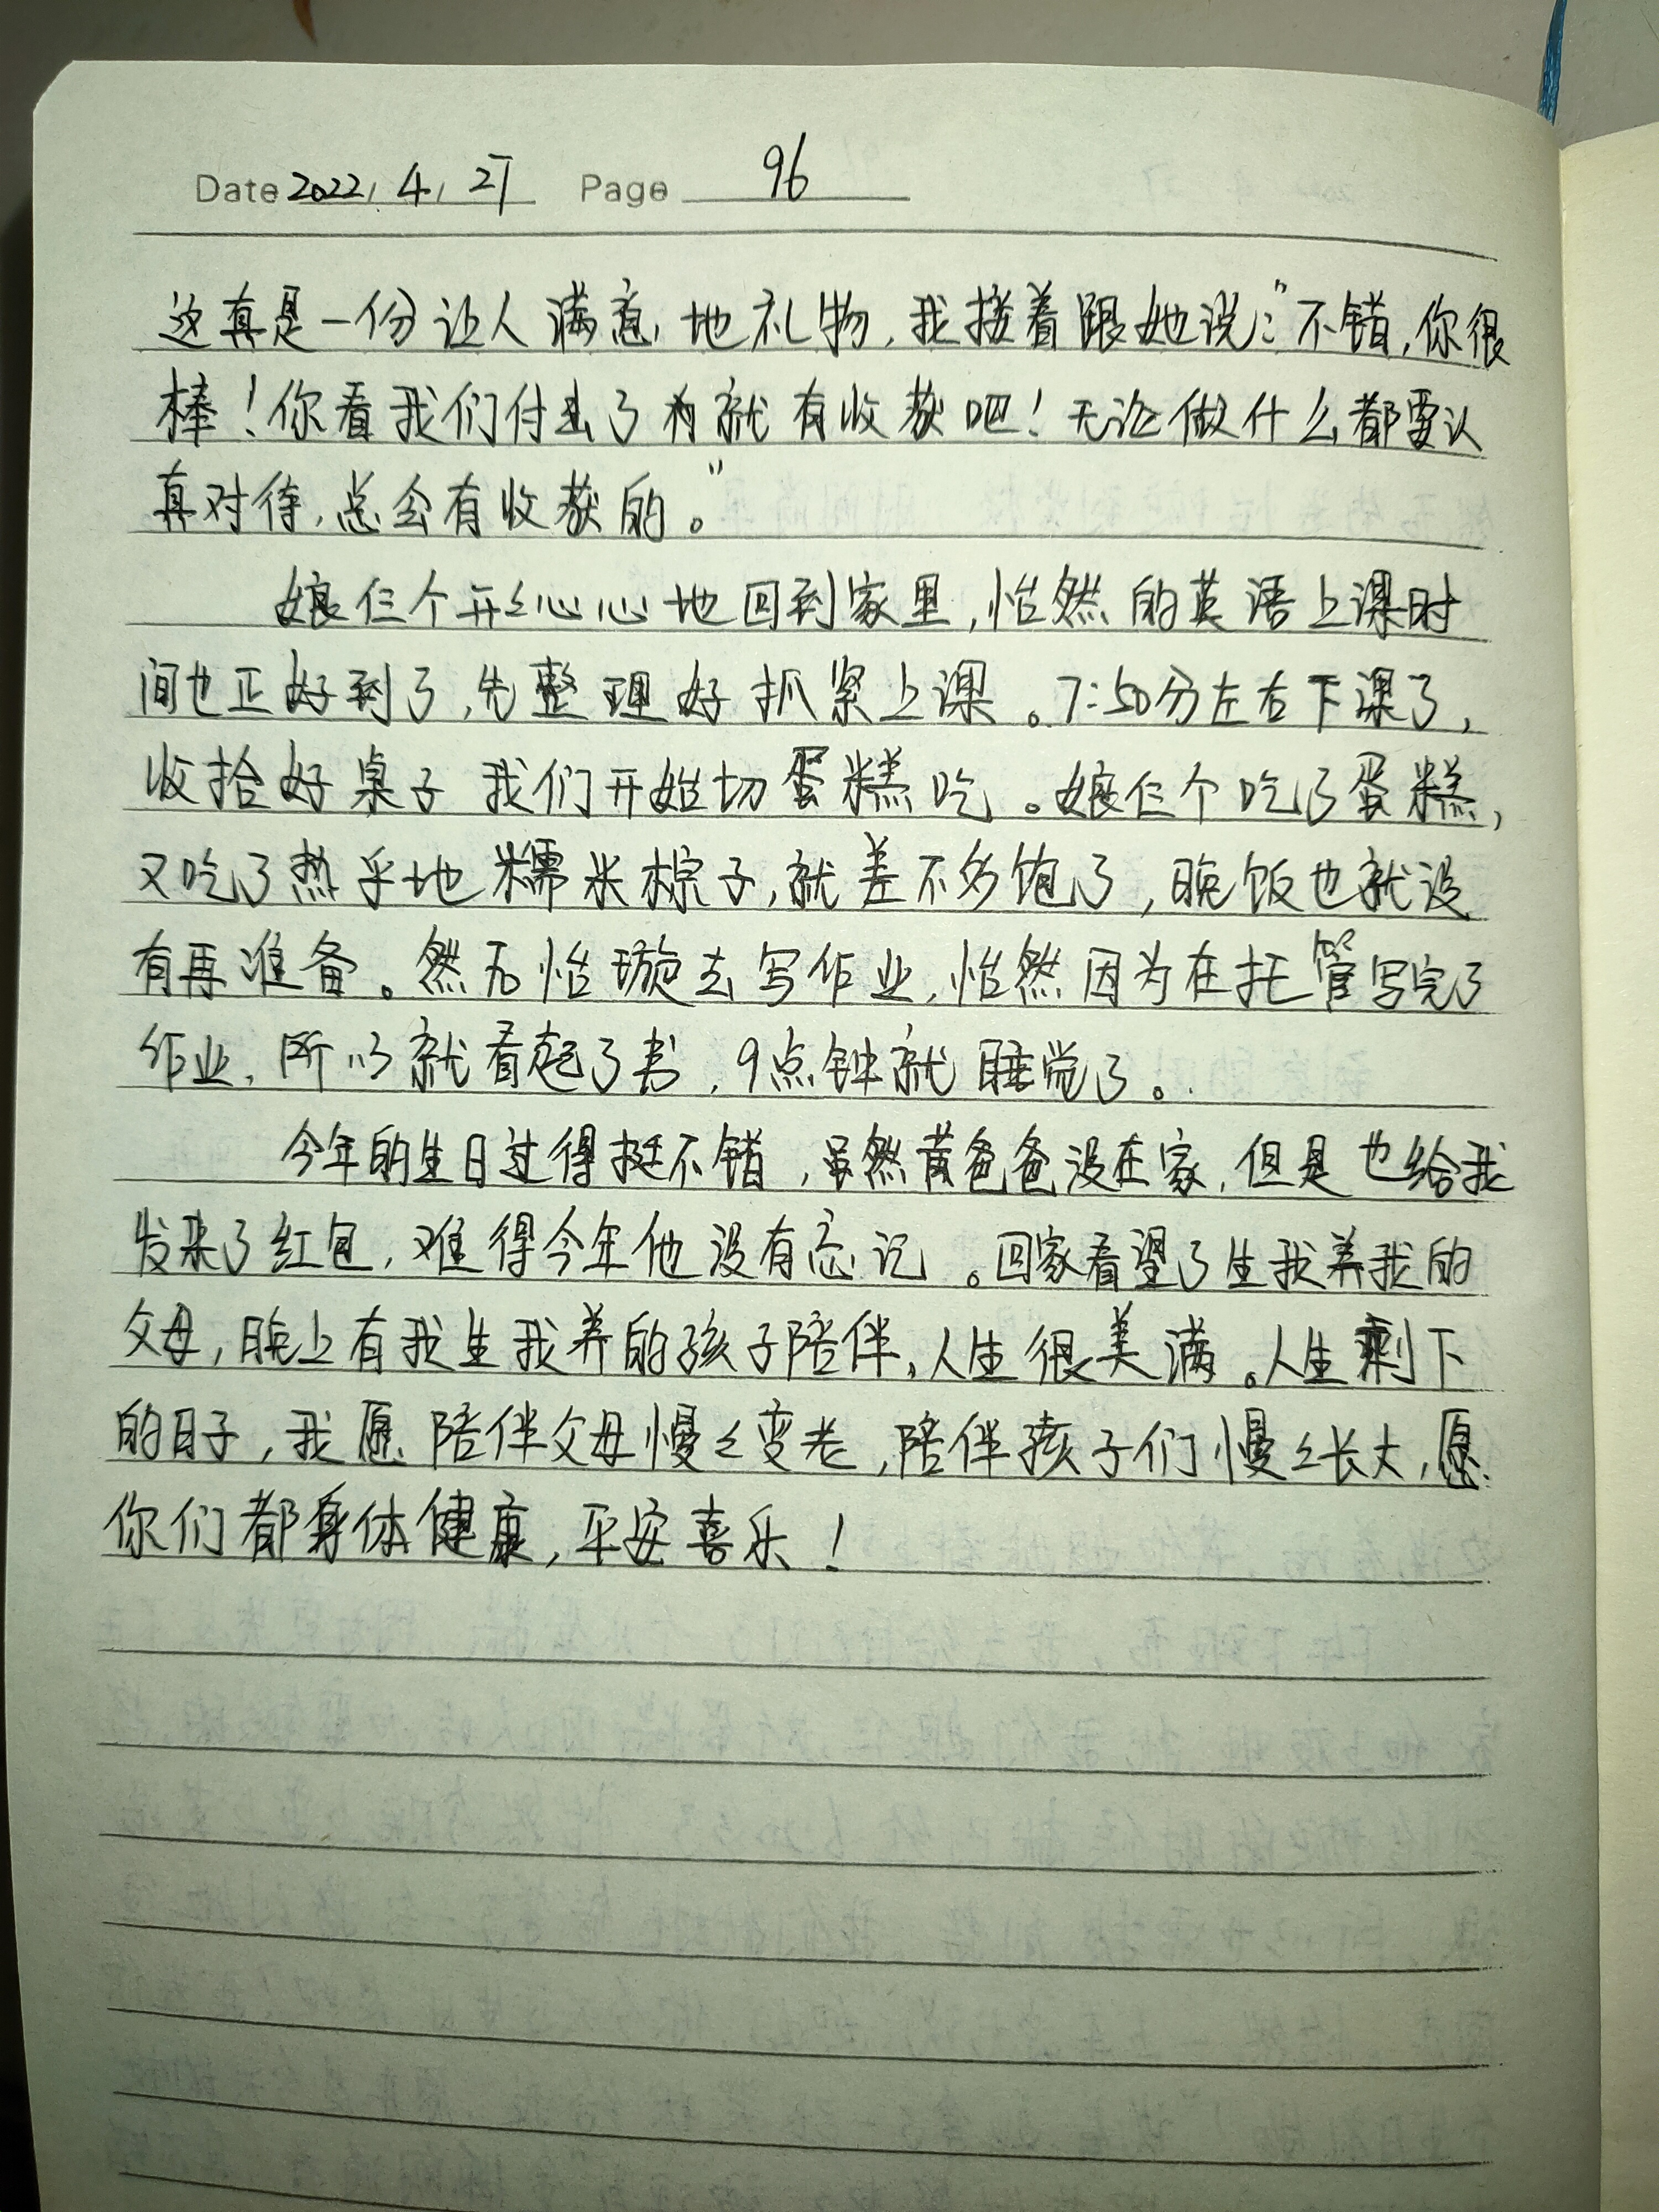 Date 2022.4.27 Page 96
这真是一份让人满意地礼物,我接着跟她说:"不错,你很
棒!你看我们付出了就有收获吧!无论做什么都要认
真对待,总会有收获的。"
娘仨个开々心心地回到家里,怡然的英语上课时
间也正好到了,先整理好抓紧上课。7:50分左右下课了,
收拾好桌子 我们开始切蛋糕吃。娘仨个吃了蛋糕,
又吃了热乎地糯米棕子,就差不多饱了,晚饭也就没
有再准备。然后怡璇去写作业,怡然因为在托管写完了
作业,所以就看起了书,9点钟就睡觉了。
今年的生日过得挺不错,虽然黄爸爸没在家,但是也给我
发来了红包,难得今年他没有忘记。回家看望了生我养我的
父母,晚上有我生我养的孩子陪伴,人生很美满。人生剩下
的日子,我愿陪伴父母慢々变老,陪伴孩子们慢々长大,愿
你们都身体健康,平安喜乐!